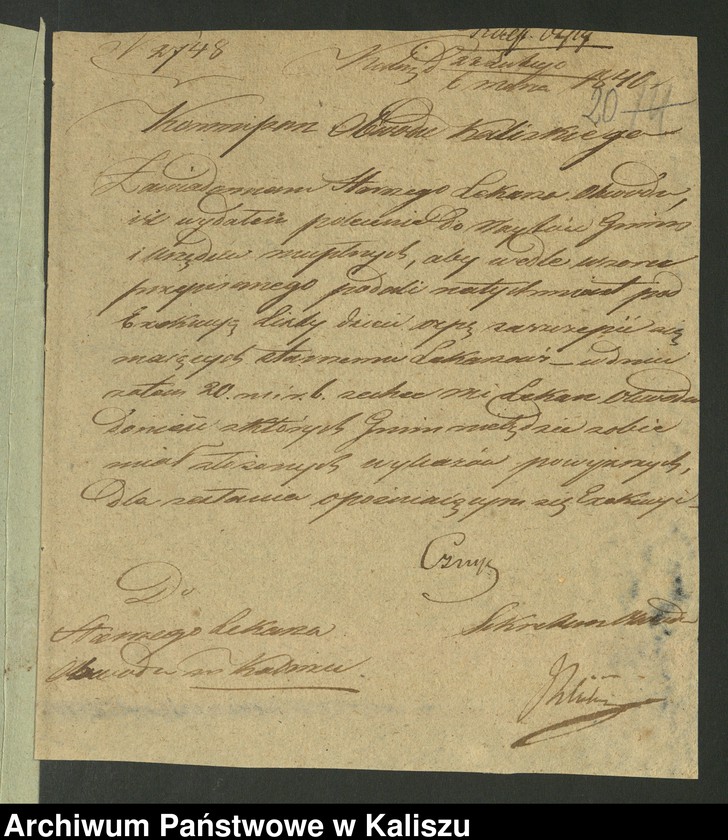 N 2748
22 Lutego
6 Marca 1840
20 14
Kommissarz Obwodu Kaliskiego
Zawiadamiam Starszego Lekarza Obwodu,
iż wydałem polecenie do Wójtów Gmin
i Urzędów municypalnych, aby wedle wzoru
przepisanego podali natychmiast pod
Exekucyą Listy dzieci ospę szczepić się
mających starszemu Lekarzowi w dniu
zatem 20. m. i r. b. zechce mi Lekarz Obwodu
donieść z których Gmin nie będzie sobie
miał złożonych wykazów powyższych,
dla zesłania opóźniającym się Exekucyi
Do
Starszego Lekarza
Obwodu w Kaliszu
Sekretarz Obwodu
Archiwum Państwowe w Kaliszu